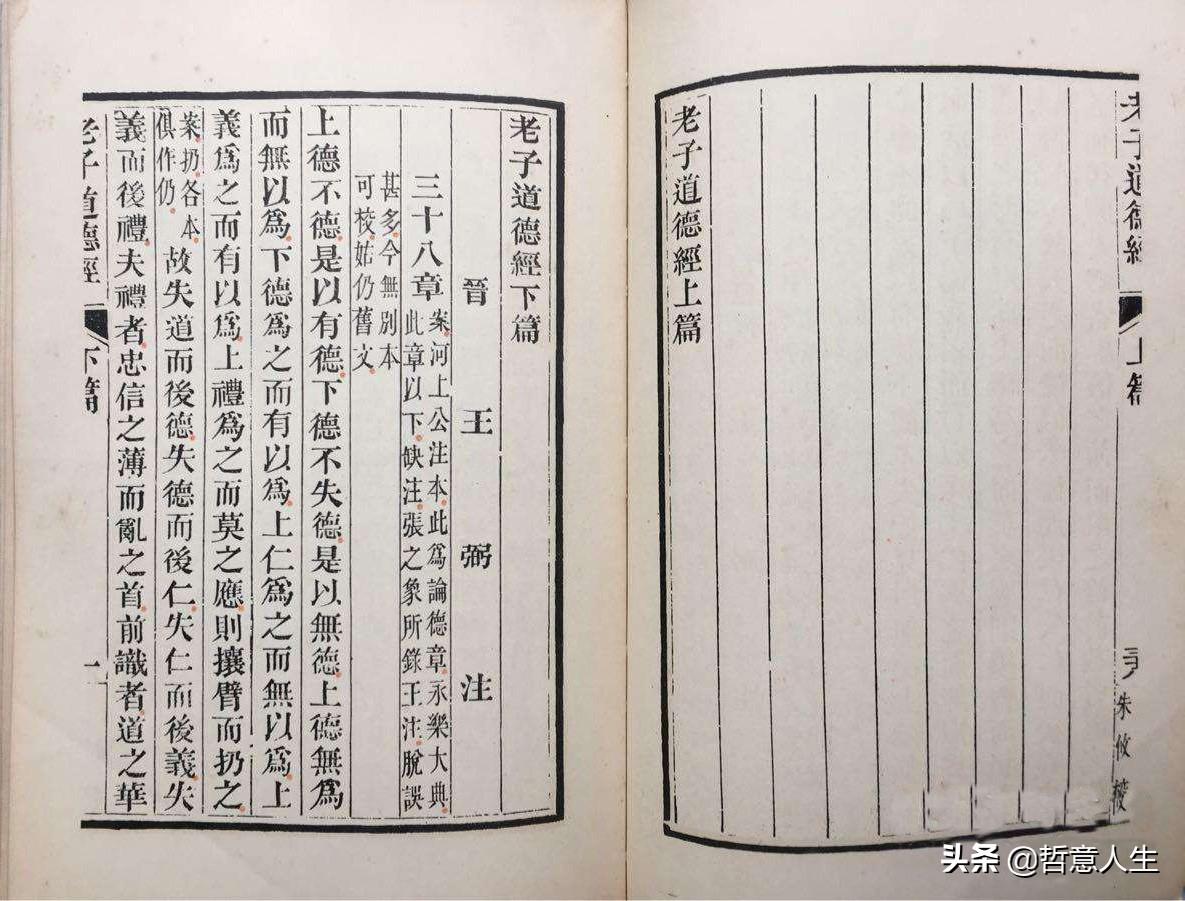 老子道德經
上篇
朱攸校
老子道德經上篇
老子道德經下篇
晉王弼注
三十八章案河上公注本此爲論德章永樂大典
此章以下缺注張之象所錄王注脫誤
甚多今無別本
可校姑仍舊文
上德不德是以有德下德不失德是以無德上德無爲
而無以爲下德爲之而有以爲上仁爲之而無以爲上
義爲之而有以爲上禮爲之而莫之應則攘臂而扔之
案扔各本
俱作仍
故失道而後德失德而後仁失仁而後義失
義而後禮夫禮者忠信之薄而亂之首前識者道之華
老子道德經
下篇
一
头条 @哲意人生